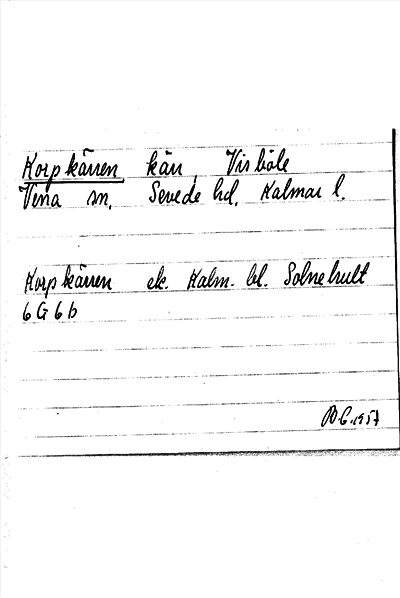 Korpkärren kärr, Visböle
Vena sn, Sevede hd, Kalmar l.
Korpkärren ek. Kalm. bl. Solnehult
6 G 6 b
1957